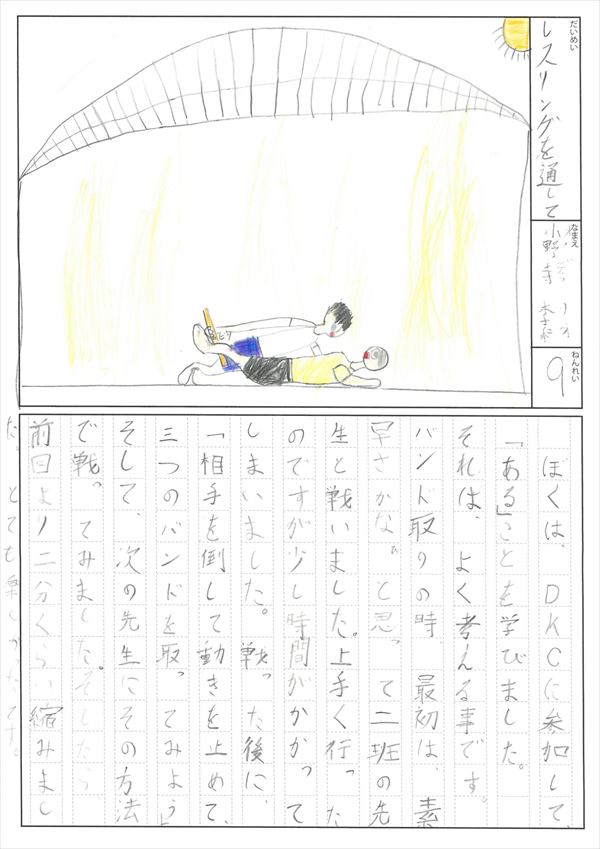 だいめい
レスリングを通して
なまえ
小野寺
ねんれい
9
ぼくは、DKCに参加して、
「ある」ことを学びました。
それは、よく考える事です。
バンド取りの時 最初は、素
早さかな。と思って二班の先
生と戦いました。上手く行った
のですが少し時間がかかって
しまいました。戦った後に、
「相手を倒して動きを止めて、
三つのバンドを取ってみよう」
そして、次の先生にその方法
で戦ってみました。そしたら
前回より二分くらい縮みまし
た。とても楽しかったです。